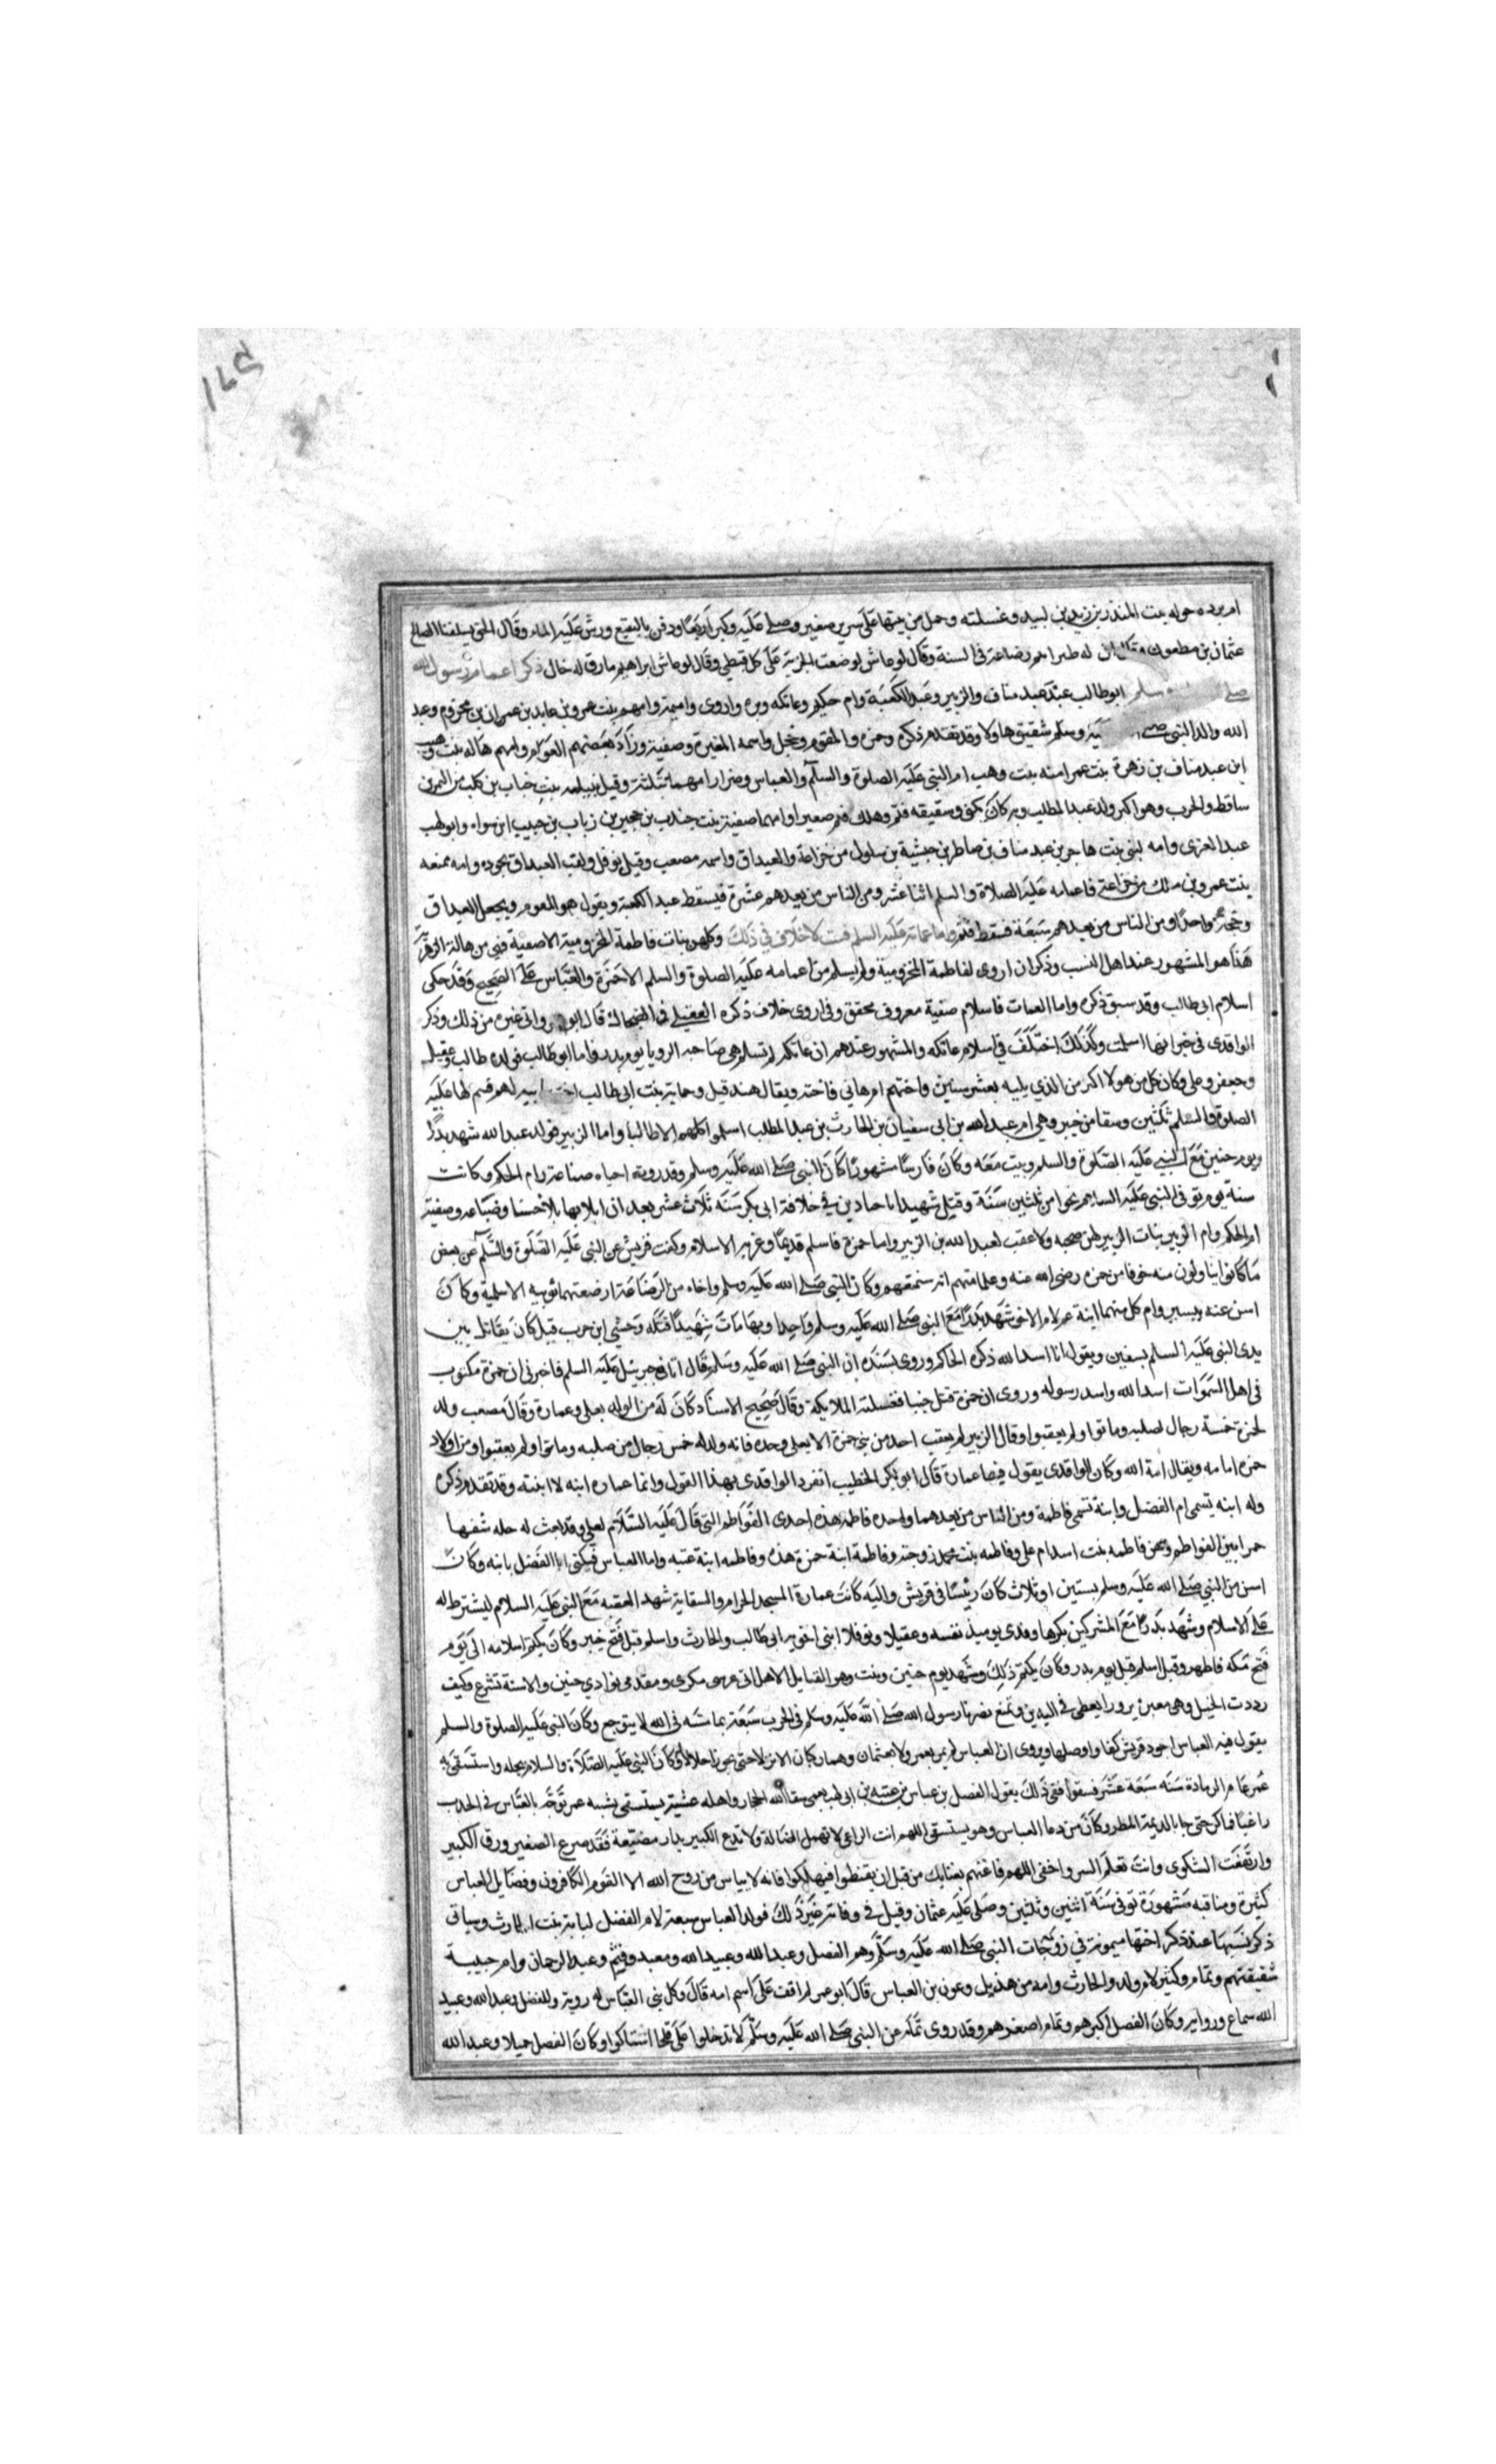 ام برده حوله بنت المنذر بن زيد بن لبيد وغسلته وحمل من بيتها على سرير صغير وصلى عليه وكبر اربعا ودفن بالبقيع ورش عليه الماء وقال الحق بسلفنا الصالح
عثمان بن مظعون وقال ان له ظيرا تتم رضاعه فى السنة وقال لو عاش لوضعت الجزية على كل قبطي وقال لو عاش ابراهيم مارق له خال ذكر اعمام رسول الله
صلى سلم ابو طالب عبد مناف والزبير وعبد الكعبة وام حكيم وعاتكه وبره واروى واميمة وامهم بنت عمرو بن عايد بن عمران بن مخزوم وعبد
الله والد النبي صلى عليه وسلم شقيق هاولا وقد تقدم ذكره وحمزه والمقوم وحجل واسمه المغيرة وصفية وزاد بعضهم العوام وامهم هاله بنت وهيب
ابن عبد مناف بن زهرة بنت عم امنه بنت وهب ام النبى عليه الصلوة والسلم والعباس وضرار امهما نتلة وقيل نبيله بنت خباب بن كلب من النمر بن
ساقط والحرب وهو اكبر ولد عبد المطلب وبه كان يكنى وشقيقه قثم وهلك قثم صغيرا وامهما صفية بنت جندب بن حجير بن زباب بن حبيب ابن سواه وابو لهب
عبد العزى وامه لبنى بنت هاجر بن عبد مناف بن ضاطر بن حبشية بن سلول من خزاعة والغيداق واسمه مصعب وقيل نوفل ولقب الغيداق بجوده وامه ممنعه
بنت عمرو بن مالك من خزاعة فاعمامه عليه الصلاة والسلم اثنا عشر ومن الناس من يعدهم عشرة فيسقط عبد الكعبة ويقول هو المقوم ويجعل الغيداق
وحجلا واحدا ومن الناس من يعدهم تسعة فيسقط قثم واما عماته عليه السلم فست لا خلاف في ذلك وكلهن بنات فاطمة المخزومية الا صفية فهى من هالة الزهرية
هذا هو المشهور عند اهل النسب وذكر ان اروى لفاطمة المخزومية ولم يسلم من اعمامه عليه الصلوة والسلم الا حمزة والعباس على الصحيح وقد حكى
اسلام ابى طالب وقد سبق ذكره واما العمات فاسلام صفية معروف محقق وفى اروى خلاف ذكره العقيلي فى الصحابة قال ابو وابى غيره من ذلك وذكر
الواقدى فى خبر انها اسلمت وكذلك اختلف في اسلام عاتكه والمشهور عندهم ان عاتكه لم تسلم وهى صاحبه الرويا يوم بدر فاما ابو طالب فولده طالب وعقيل
وجعفر وعلى وكان كل من هولا اكبر من الذي يليه بعشر سنين واختهم ام هاني فاخته ويقال هند قيل وجمانة بنت ابى طالب اخت لهم قسم لها عليه
الصلوة والسلم ثلثين وسقا من خيبر وهي ام عبد الله بن ابى سفيان بن الحارث بن عبد المطلب اسلموا كلهم الا طالبا واما الزبير فولده عبد الله شهد بدرا
ويوم حنين مع النبي عليه الصلوة والسلم وثبت معه وكان فارسا مشهورا كان النبي صلى الله عليه وسلم وقد رويه احياه ضباعة وام الحكم وكانت
سنة يوم توفى النبي عليه السلم نحوا من ثلثين سنة وقتل شهيدا باجنادين في خلافة ابى بكر سنة ثلاث عشر بعد ان ابلا بها بلا حسنا وضباعه وصفية
ام الحكم وام الزبير بنات الزبير لهن صحبه ولا عقب لعبد الله بن الزبير واما حمزة فاسلم قديما وعز به الاسلام وكفت قريش عن النبى عليه الصلوة والسلم عن بعض
ما كانوا ينالون منه خوفا من حمزه رضى الله عنه وعلما منهم انه سيمنعهم وكان النبى صلى الله عليه وسلم واخاه من الرضاعة ارضعتهما ثويبه الاسلمية وكان
اسن عنه بيسير وام كل منهما ابنة عم لام الاخر شهد بدرا مع النبى صلى الله عليه وسلم واحدا وبها مات شهيدا قتله وحشي ابن حرب قيل كان يقاتل بين
يدى النبى عليه السلم بسيفين ويقول انا اسد الله ذكره الحاكم وروى بسنده ان النبى صلى الله عليه وسلم قال اتانى جبريل عليه السلم فاخبرنى ان حمزة مكتوب
فى اهل السموات اسد الله واسد رسوله وروى ان حمزة قتل جنبا فغسلته الملايكة وقال صحيح الاسناد كان له من الولد يعلى وعمارة وقال مصعب ولد
لحمزة خمسة رجال لصلبه وماتوا ولم يعقبوا وقال الزبير لم يعقب احد من بنى حمزة الا يعلى وحده فانه ولد له خمس رجال من صلبه وماتوا ولم يعقبوا ومن اولاد
حمزه امامه ويقال امة الله وكان الواقدى يقول فيها عمارة قال ابو بكر الخطيب انفرد الواقدى بهذا القول وانما عماره ابنه لا ابنته وقد تقدم ذكره
وله ابنه تسمى ام الفضل وابنة تسمى فاطمة ومن الناس من يعدهما واحده فاطمه هذه احدى الفواطم التى قال عليه السلام لعلى وقد بعث له حله شقها
خمرا بين الفواطم وهن فاطمه بنت اسد ام على وفاطمه بنت محمد زوجته وفاطمة ابنة حمزة هذه وفاطمه ابنة عتبه واما العباس فيكنى ابا الفضل بابنه وكان
اسن من النبي صلى الله عليه وسلم بسنتين او ثلاث كان رئيسا فى قريش واليه كانت عمارة المسجد الحرام والسقاية شهد العقبه مع النبي عليه السلام ليشترط له
على الاسلام وشهد بدرا مع المشركين مكرها وفدى يوميذ نفسه وعقيلا ونوفلا ابنى اخويه ابى طالب والحارث واسلم قبل فتح خيبر وكان يكتم اسلامه الى يوم
فتح مكه فاظهر وقبل اسلم قبل يوم بدر وكان يكتم ذلك وشهد يوم حنين وثبت وهو القايل الا هل اتى عرسى مكرى ومقدمى بوادي حنين والاسنة تشرع وكيف
رددت الخيل وهى مغيرة بزورا يعطى فى اليدين وتمنع نصرنا رسول الله صلى الله عليه وسلم فى الحرب سبعة بما مسه فى الله لا يتوجع وكان النبى عليه الصلوة والسلم
يقول فيه العباس اجود قريش كفا واوصلها ويروى ان العباس لم يمر بعمر ولا بعثمان وهما راكبان الا نزلا حتى يجوز اجلالا له وكان النبى عليه الصلاة والسلام يجله واستسقى به
عمر عام الرمادة سنه سبعة عشر فسقوا ففى ذلك يقول الفضل بن عباس بن عتبه بن ابى لهب بعمى سقا الله الحجاز واهله عشية يستسقى بشيبه عمر توجه بالعباس فى الجدب
راغبا فما كر حتى جا بالديمة المطر وكان من دعا العباس وهو يستسقى اللهم انت الراعى لا تهمل الضالة ولا تدع الكبير بدار مضيعة فقد ضرع الصغير ورق الكبير
وارتفعت الشكوى وانت تعلم السر واخفى اللهم فاغثهم بغياثك من قبل ان يقنطوا فيهلكوا فانه لا يياس من روح الله الا القوم الكافرون وفضايل العباس
كثيرة ومناقبه مشهورة توفى سنة اثنين وثلثين وصلى عليه عثمان وقيل فى وفاته غير ذلك فولد العباس سبعة لام الفضل لبابة بنت الحارث وسياتى
ذكر نسبها عند ذكر اختها ميمونة في زوجات النبى صلى الله عليه وسلم وهم الفضل وعبد الله وعبيد الله ومعبد وقثم وعبد الرحمان وام حبيبة
شقيقتهم وتمام وكثير لام ولد والحارث وامه من هذيل وعون بن العباس قال ابو عمر لم اقف على اسم امه قال وكل بنى العباس له روية وللفضل وعبد الله وعبيد
الله سماع ورواية وكان الفضل اكبرهم وتمام اصغرهم وقد روى تمام عن النبى صلى الله عليه وسلم لا تدخلوا على قلحا استاكوا وكان الفضل جميلا وعبد الله